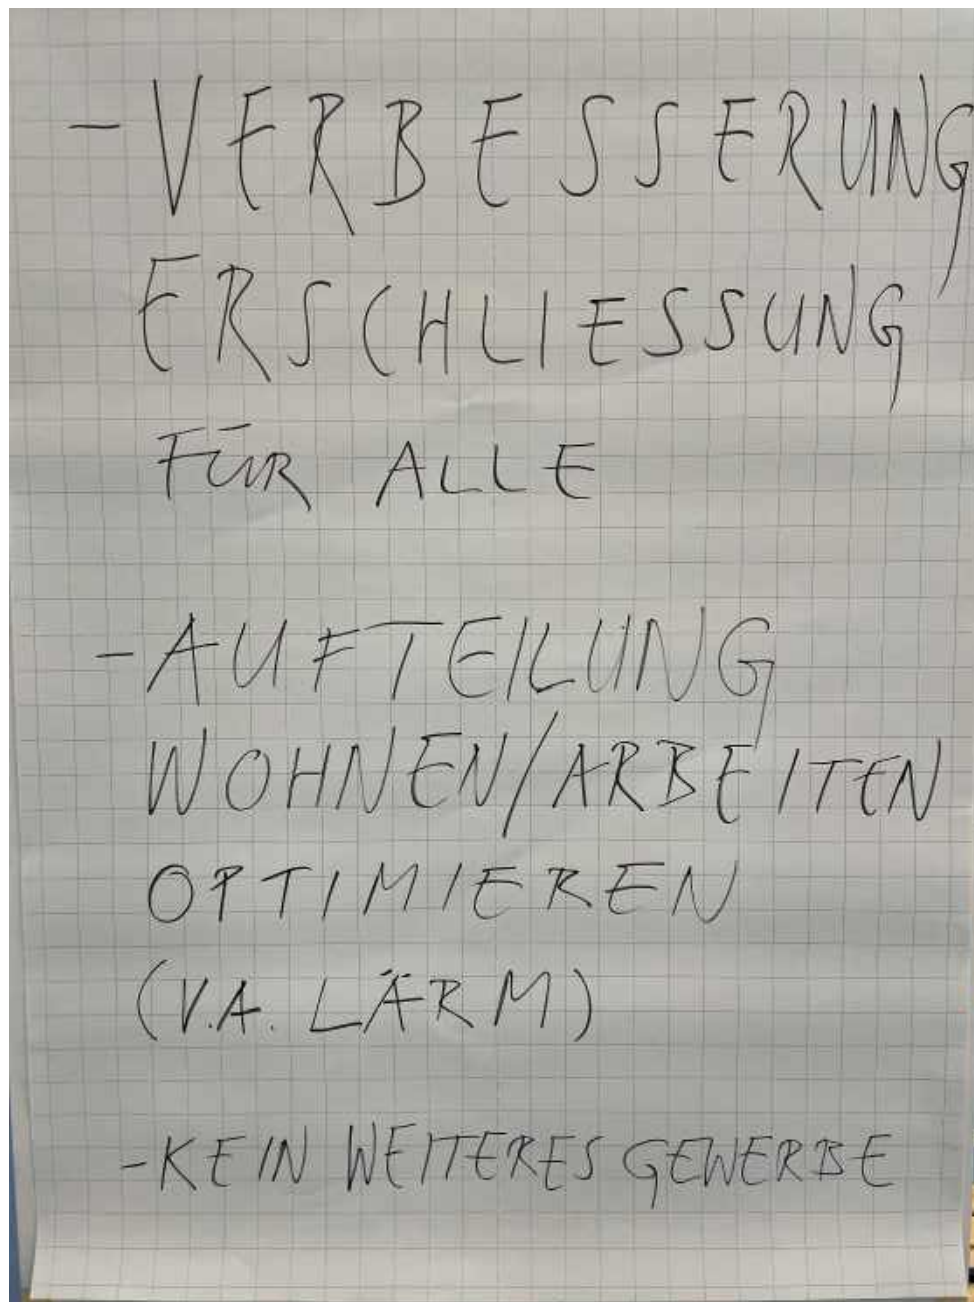 - VERBESSERUNG
ERSCHLIESSUNG
FÜR ALLE
- AUFTEILUNG
WOHNEN/ARBEITEN
OPTIMIEREN
(V.A. LÄRM)
- KEIN WEITERES GEWERBE